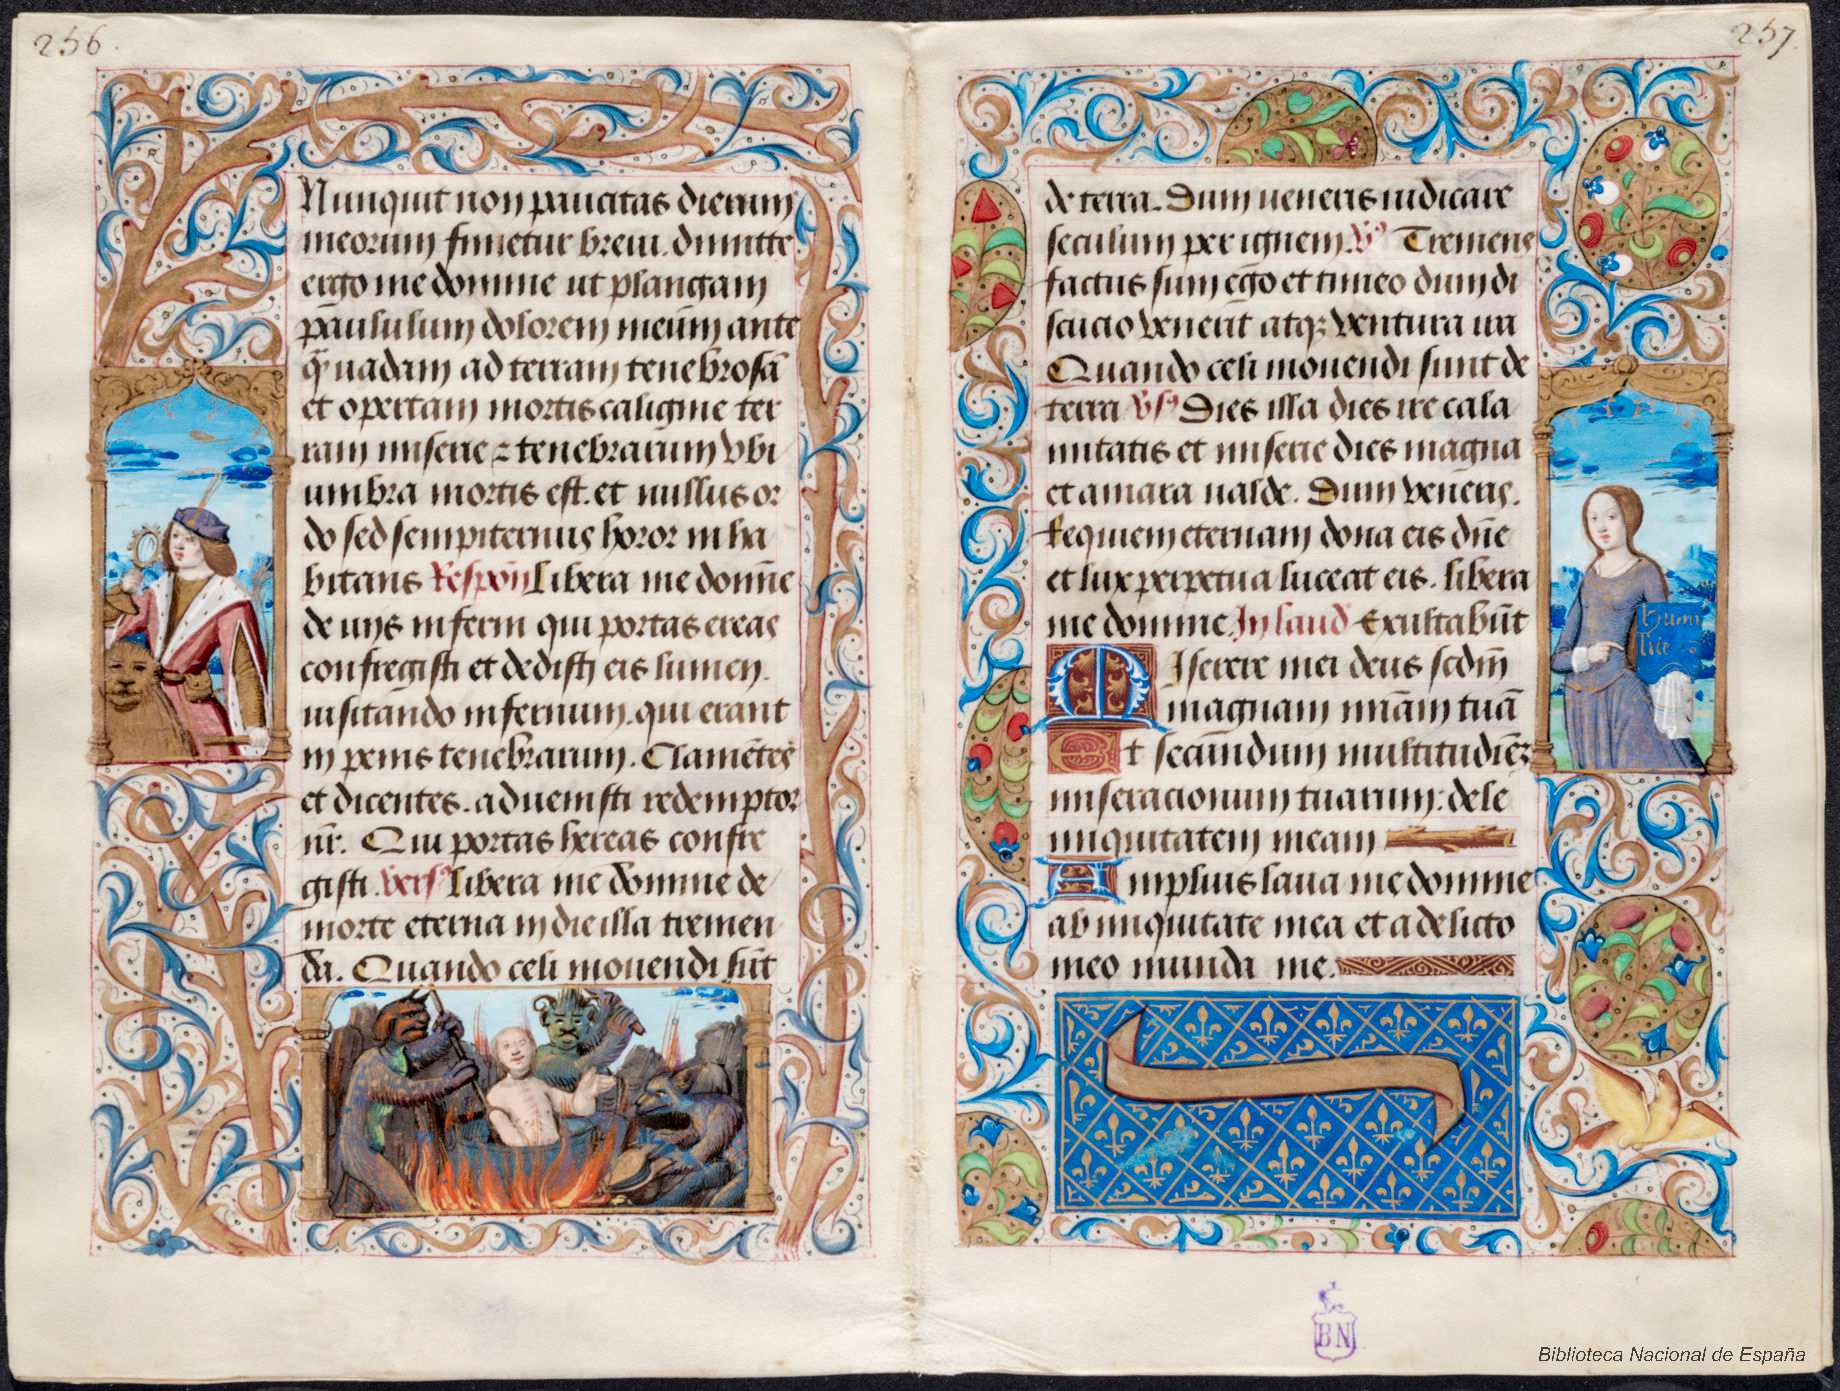 256.
Nunquit non paucitas dierum
meorum finietur breui. dimitte
ergo me domine ut plangam
paululum dolorem meum ante
q̃ uadam ad terram tenebrosã
et opertam mortis caligine ter
ram miserie ⁊ tenebrarum vbi
umbra mortis est. et nullus or
do sed sempiternus horor inha
bitans Respon Libera me domĩe
de uijs inferni qui portas ereas
confregisti et dedisti eis lumen.
uisitando infernum. qui erant
in penis tenebrarum. Clamẽtes
et dicentes. aduenisti redemptor
nr̃. Qui portas hereas confre
gisti. vers Libera me domine de
morte eterna in die illa tremen
da. Quando celi mouendi sũt
257.
de terra. Dum ueneris iudicare
seculum per ignem. V̾s Tremens
factus sum ego et timeo dum di
scucio venerit atq; ventura ira
Quando celi mouendi sunt de
terra V̾s Dies illa dies ire cala
mitatis et miserie dies magna
et amara ualde. Dum veneris.
Requiem eternam dona eis dñe
et lux perpetua luceat eis. libera
me domine. In laud Exultabũt
Miserere mei deus scdm̃
magnam miã̃m tuã
Et secundum multitudiẽz
miseracionum tuarum: dele
iniquitatem meam
Amplius laua me domine
ab iniquitate mea et a delicto
meo munda me.
Humi
lite
BN
Biblioteca Nacional de España